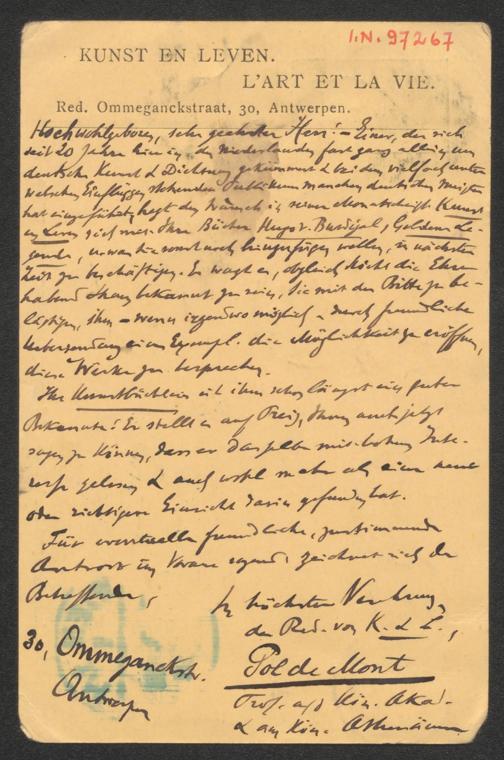 I.N. 97267
KUNST EN LEVEN.
L'ART ET LA VIE.
Red. Ommeganckstraat, 30, Antwerpen.
Hochwohlgeboren, sehr geehrter Herr! – Einer, der sich
seit 20 Jahre hier in den Niederlanden fast ganz allein um
deutsche Kunst & Dichtung gekümmert & bei dem vielfach unter
welschen Einflüssen stehenden Publikum manchen deutschen Meister
hat eingeführt, hegt den Wunsch in seiner Monatschrift Kunst
en Leven sich mit Ihre Bücher Hugos Burdigal, Goldene Le-
gende, u. was Sie sonst noch hinzufügen wollen, in nächster
Zeit zu beschäftigen. Er wagt es, obgleich nicht die Ehre
habend Ihnen bekannt zu sein, Sie mit der Bitte zu be-
lästigen, ihm – wenn irgendwo möglich – durch freundliche
Uebersendung eines Exempl. die Möglichkeit zu eröffnen,
diese Werke zu besprechen.
Ihr Kunstbüchlein ist ihm schon längst ein guter
Bekannter! Er stellt es auf Preis, Ihnen auch jetzt
sagen zu können, dass er dasselbe mit hohem Inte-
resse gelesen & auch wohl mehr als eine neue
oder richtigere Einsicht darin gefunden hat.
Für eventuelle freundliche, zustimmende
Antwort im Voraus dankend, zeichnet sich der
Betreffende,
In höchster Verehrung
der Red. von K. & L.,
30, Ommeganckstr.
Antwerpen
Pol de Mont
Prof. a/d Kön. Akad.
& am Kön. Athenäum